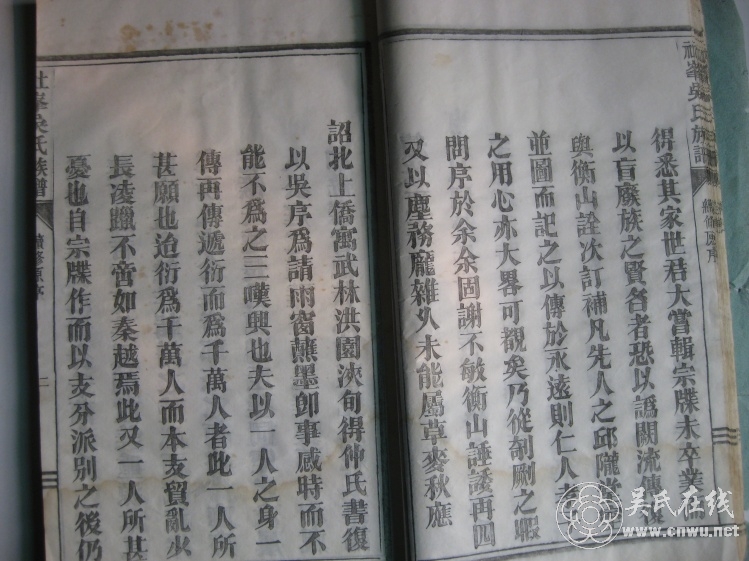 社峯吳氏族譜
續修原序
得悉其家世君大嘗輯宗牒未卒業
以盲廢族之賢者恐以譌闕流傳
與衡山詮次訂補凡先人之邱隴
並圖而記之以傳於永遠則仁人
之用心亦大畧可觀矣乃從剞劂之暇
問序於余余固謝不敏衡山諈諉再四
又以塵務龐雜久未能屬草麥秋應
詔北上僑寓武林洪園浹旬得仲氏書復
以吳序爲請雨窗蘸墨卽事感時而不
能不爲之三嘆興也夫以一人之身一
傳再傳遞衍而爲千萬人者此一人所
甚願也迨衍爲千萬人而本支貿亂火
長凌躐不啻如秦越焉此又一人所甚
憂也自宗牒作而以支分派別之後仍
社峯吳氏族譜
續修原序
吳氏在线
www.cnwu.net